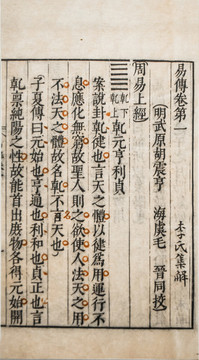 易傳卷第一 李氏集解
(明武原胡震亨 海虞毛 晉同挍)
周易上經
䷀乾下乾上 乾元亨利貞
案說卦乾健也言天之體以健爲用運行不
息應化無窮故聖人則之欲使人法天之用
不法天之體故名乾不言天也
子夏傳曰元始也亨通也利和也貞正也言
乾稟純陽之性故能首出庶物各得元始開